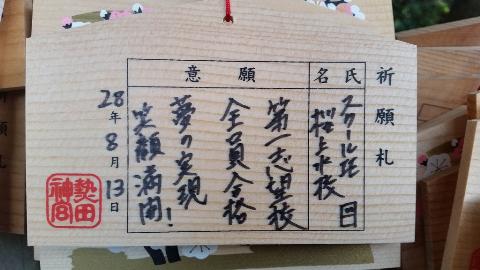 祈願札
氏名
スクールIE
桜上水校
願意
第一志望校
全員合格
夢の実現
笑顔満開！
28年8月13日
熱田神宮